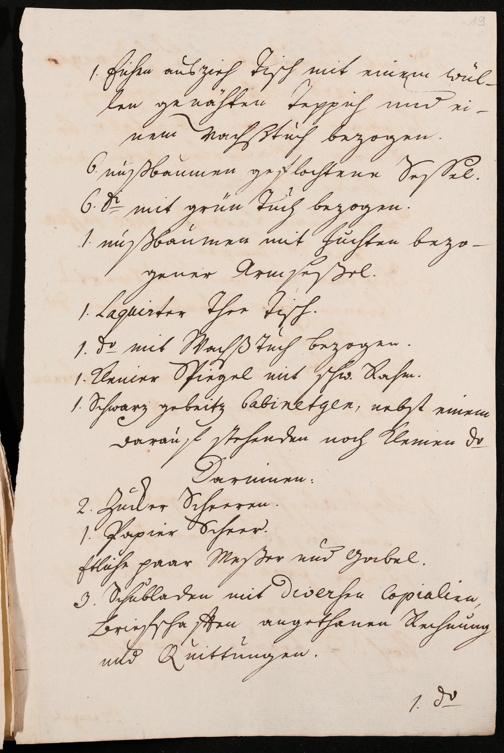 19
1. Eichen auszieh Tisch mit einem wül-
len genähten Teppich und ei-
nem Wachßtuch bezogen.
6 nußbäumen geflochtene Seßel.
6. do mit grün Tuch bezogen.
1. nußbäumen mit Juchten bezo-
gener Armseßel.
1. Laquirter Thee Tisch.
1. do mit Wachß Tuch bezogen.
1. kleiner Spiegel mit schw. Rahm.
1. Schwarz gebeitz Cabinetgen, nebst einem
darauf stehenden noch kleinen do
Darinnen:
2. Zucker Scheeren.
1. Papier Scheer.
Etliche paar Meßer und Gabel.
3. Schubladen mit diversen Copialien,
Briefschafften angethanen Rechnung
und Quittungen.
1. do